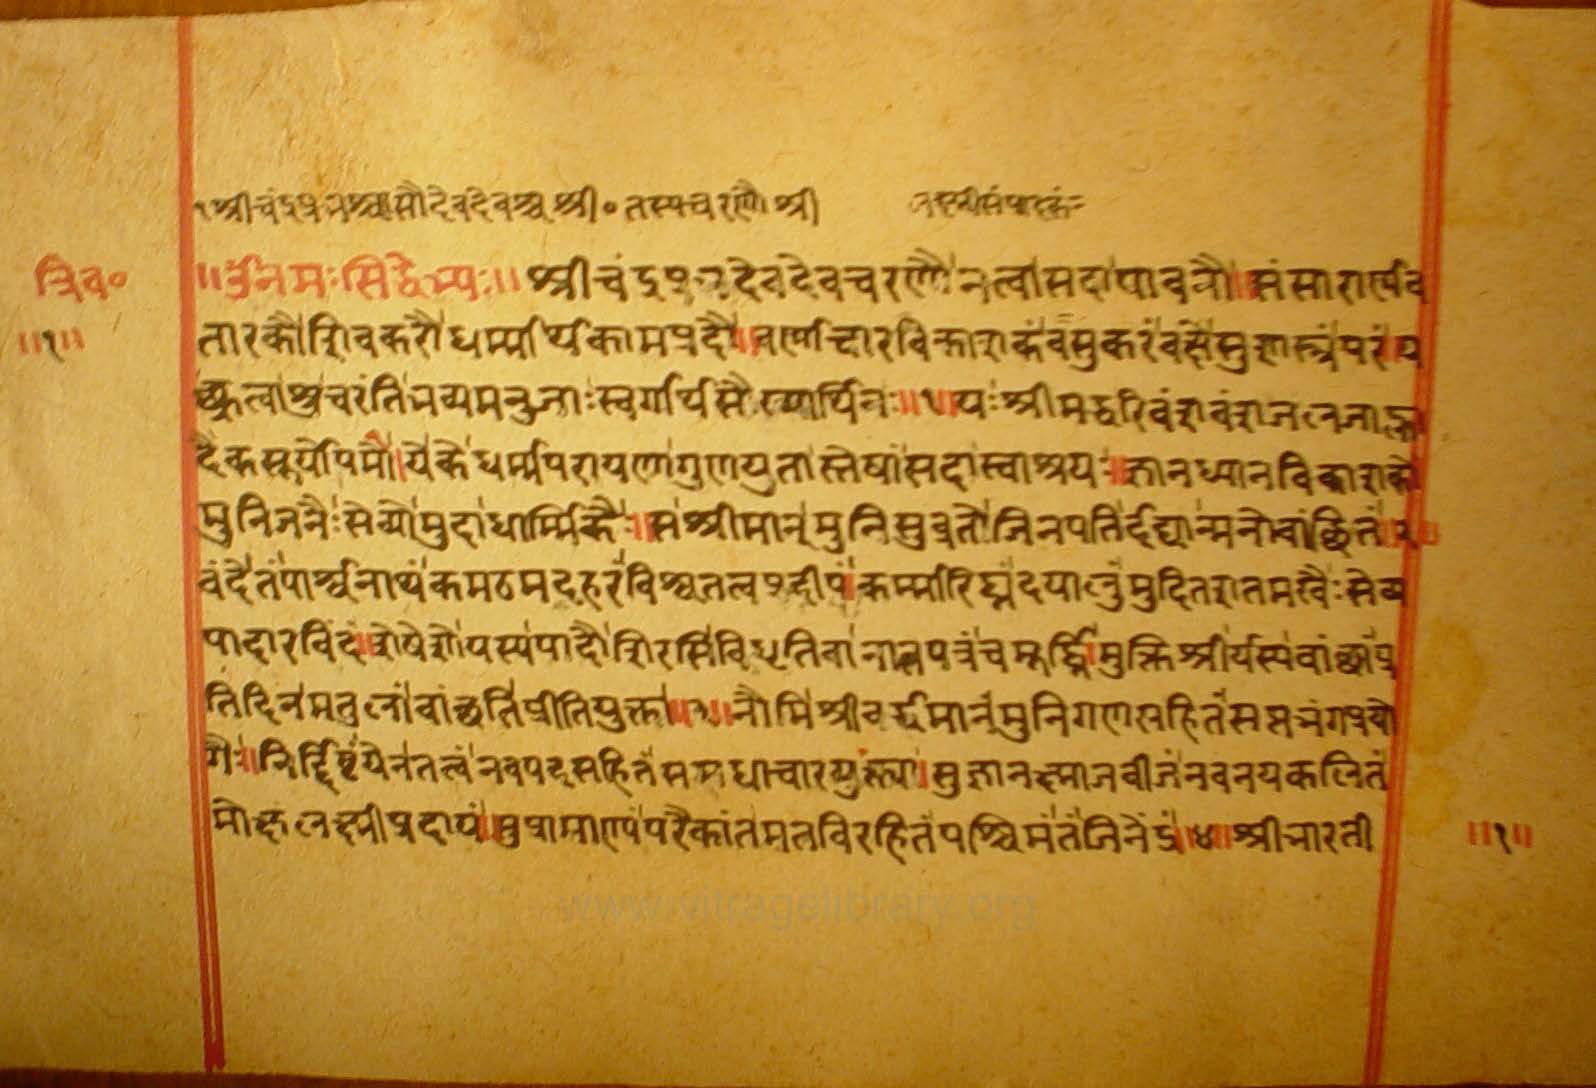 १श्रीचंद्रप्रभश्चासौदेवदेवश्चश्री॰तस्यचरणौश्री
त्रिव॰
॥ॐनमःसिद्धेभ्यः॥श्रीचंद्रप्रभदेवदेवचरणौनत्वासदापावनौ॥संसारार्णव
॥१॥
तारकौशिवकरौधर्म्मार्थकामप्रदौ॥वर्णाचारविकाशकंवसुकरंवक्ष्येसुशास्त्रंपरं॥य
छ्रुत्वाश्रुचरंतिभव्यमनुजाःस्वर्गार्थसौख्यार्थिनः॥१॥यःश्रीमद्धरिवंशवंशजलजाल्हा
दैकसूर्योपमौ॥येकेधर्म्मपरायणागुणयुतास्तेषांसदास्वाश्रयः॥ज्ञानध्यानविकाशको
मुनिजनैःसेव्योमुदाधार्म्मिकैः॥सश्रीमान्मुनिसुव्रतोजिनपतिर्दद्यान्मनोवांछितं॥२॥
वंदेतंपार्श्वनाथंकमठमदहरंविश्वतत्वप्रदीपं॥कर्म्मारिघ्नंदयालुंमुदितशतमखैःसेव्य
पादारविंदं॥शेषेशोयस्यपादौशिरसिविधृतिवानातपत्रंचमूर्द्ध्नि॥मुक्तिश्रीर्यस्यवांछांप्र
तिदिनमतुलांवांछतिप्रीतियुक्ता॥३॥नौमिश्रीवर्द्धमानंमुनिगणसहितंसप्तभंगप्रयो
गैः॥निर्द्दिष्टंयेनतत्वंनवपदसहितंसप्तधाचारयुक्त्या॥सुज्ञानक्ष्माजवीजंनवनयकलितं
मोक्षलक्ष्मीप्रदायं॥सुप्रामाण्यंपरैकांतमतविरहितंपश्चिमंतंजिनेंद्रं॥४॥श्रीभारती
॥१॥
www.vitragelibrary.org